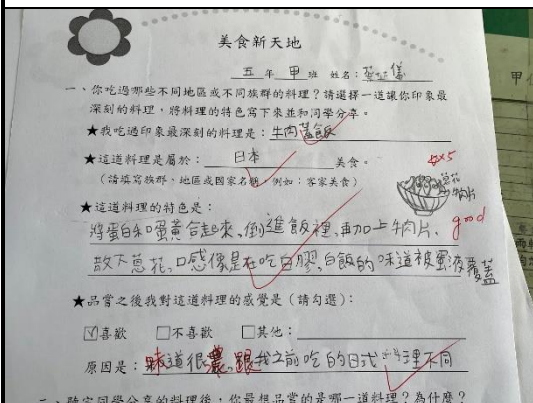 美食新天地
五 年 甲 班 姓名：
甲
一、你吃過哪些不同地區或不同族群的料理？請選擇一道讓你印象最
深刻的料理，將料理的特色寫下來並和同學分享。
★我吃過印象最深刻的料理是：牛肉蓋飯
★這道料理是屬於：日本美食。
（請填寫族群、地區或國家名稱，例如：客家美食）
蔥花
牛肉片
★這道料理的特色是：
good
將蛋白和蛋黃合起來，倒進飯裡，再加上牛肉片，
放下蔥花，口感像是在吃白膠，白飯的味道被蛋液覆蓋
★品嘗之後我對這道料理的感覺是（請勾選）：
☑喜歡 □不喜歡 □其他：
原因是：味道很濃，跟我之前吃的日式料理不同
二、聽完同學分享的料理後，你最想品嘗的是哪一道料理？為什麼？